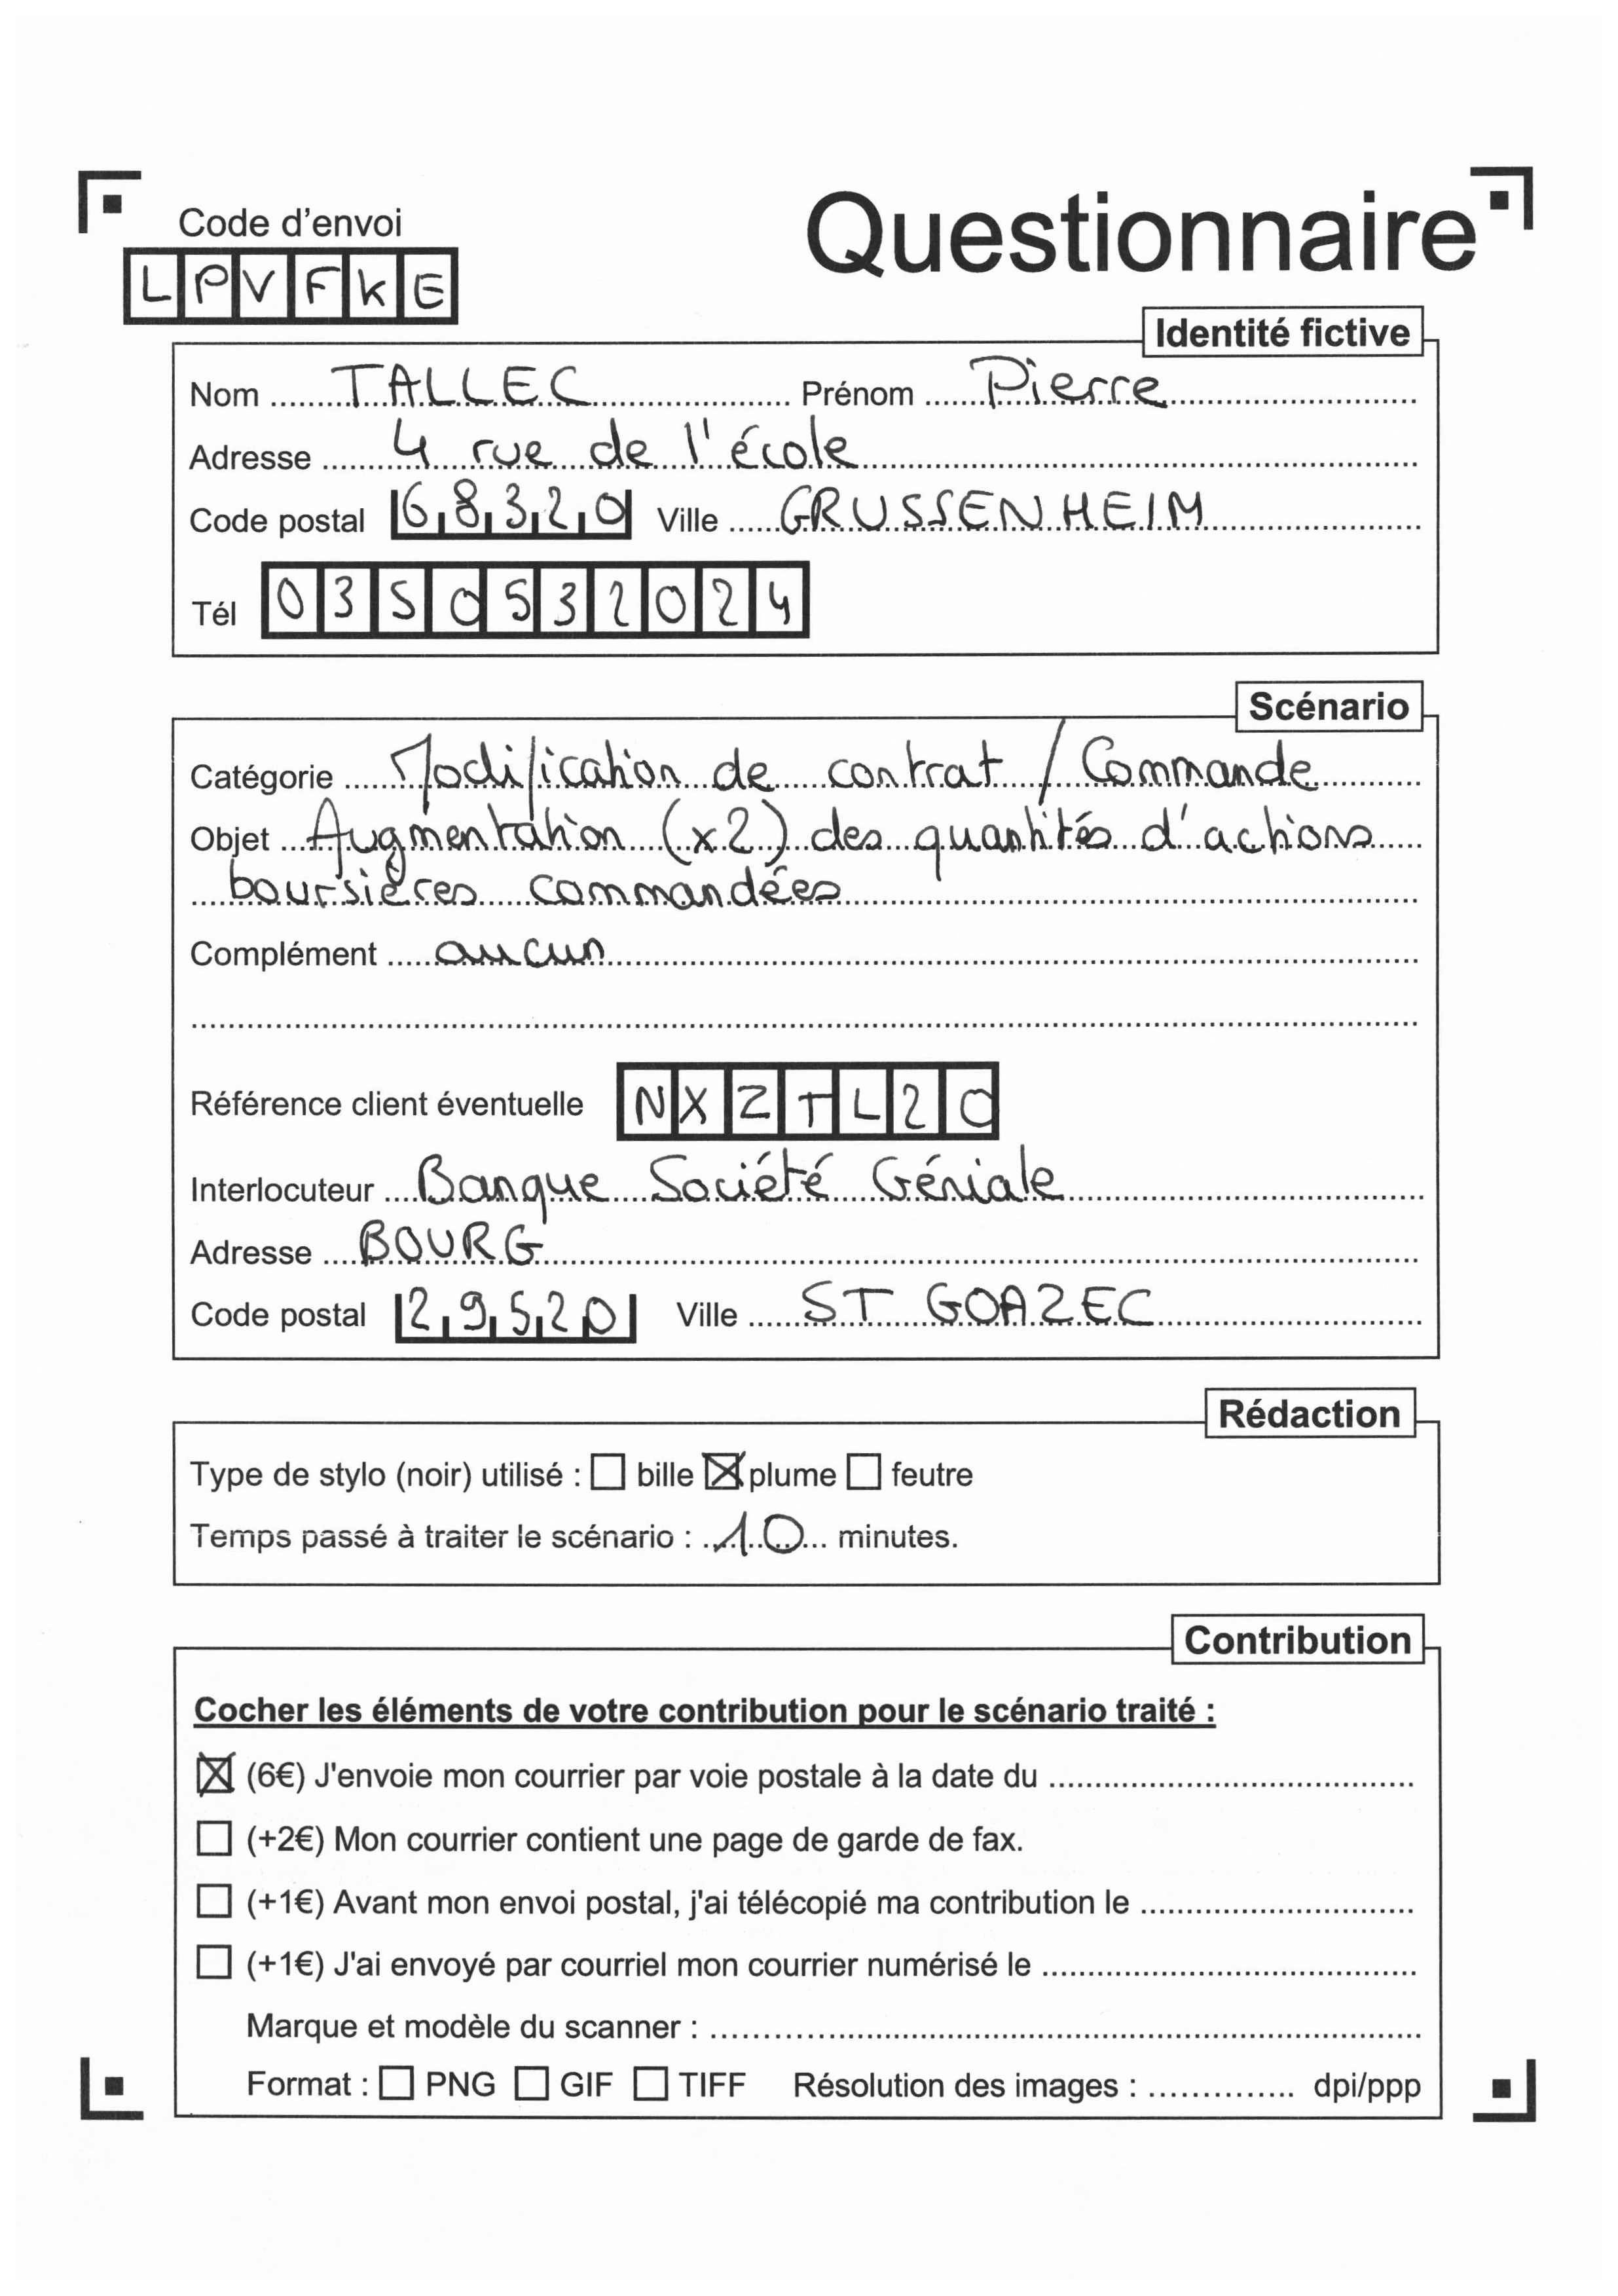 Questionnaire
Code d'envoi
LPVFKE
Identité fictive
Nom TALLEC Prénom Pierre
Adresse 4 rue de l'école
Code postal 68320 Ville GRUSSENHEIM
Tél 0350532024
Scénario
Catégorie Modification de contrat / Commande
Objet Augmentation (x2) des quantités d'actions
boursières commandées
Complément aucun
Référence client éventuelle NXZTL20
Interlocuteur Banque Société Géniale
Adresse BOURG
Code postal 29520 Ville ST GOAZEC
Rédaction
Type de stylo (noir) utilisé : ☐ bille ☒ plume ☐ feutre
Temps passé à traiter le scénario : 10 minutes.
Contribution
Cocher les éléments de votre contribution pour le scénario traité :
☒ (6€) J'envoie mon courrier par voie postale à la date du
☐ (+2€) Mon courrier contient une page de garde de fax.
☐ (+1€) Avant mon envoi postal, j'ai télécopié ma contribution le
☐ (+1€) J'ai envoyé par courriel mon courrier numérisé le
Marque et modèle du scanner :
Format : ☐ PNG ☐ GIF ☐ TIFF Résolution des images : dpi/ppp